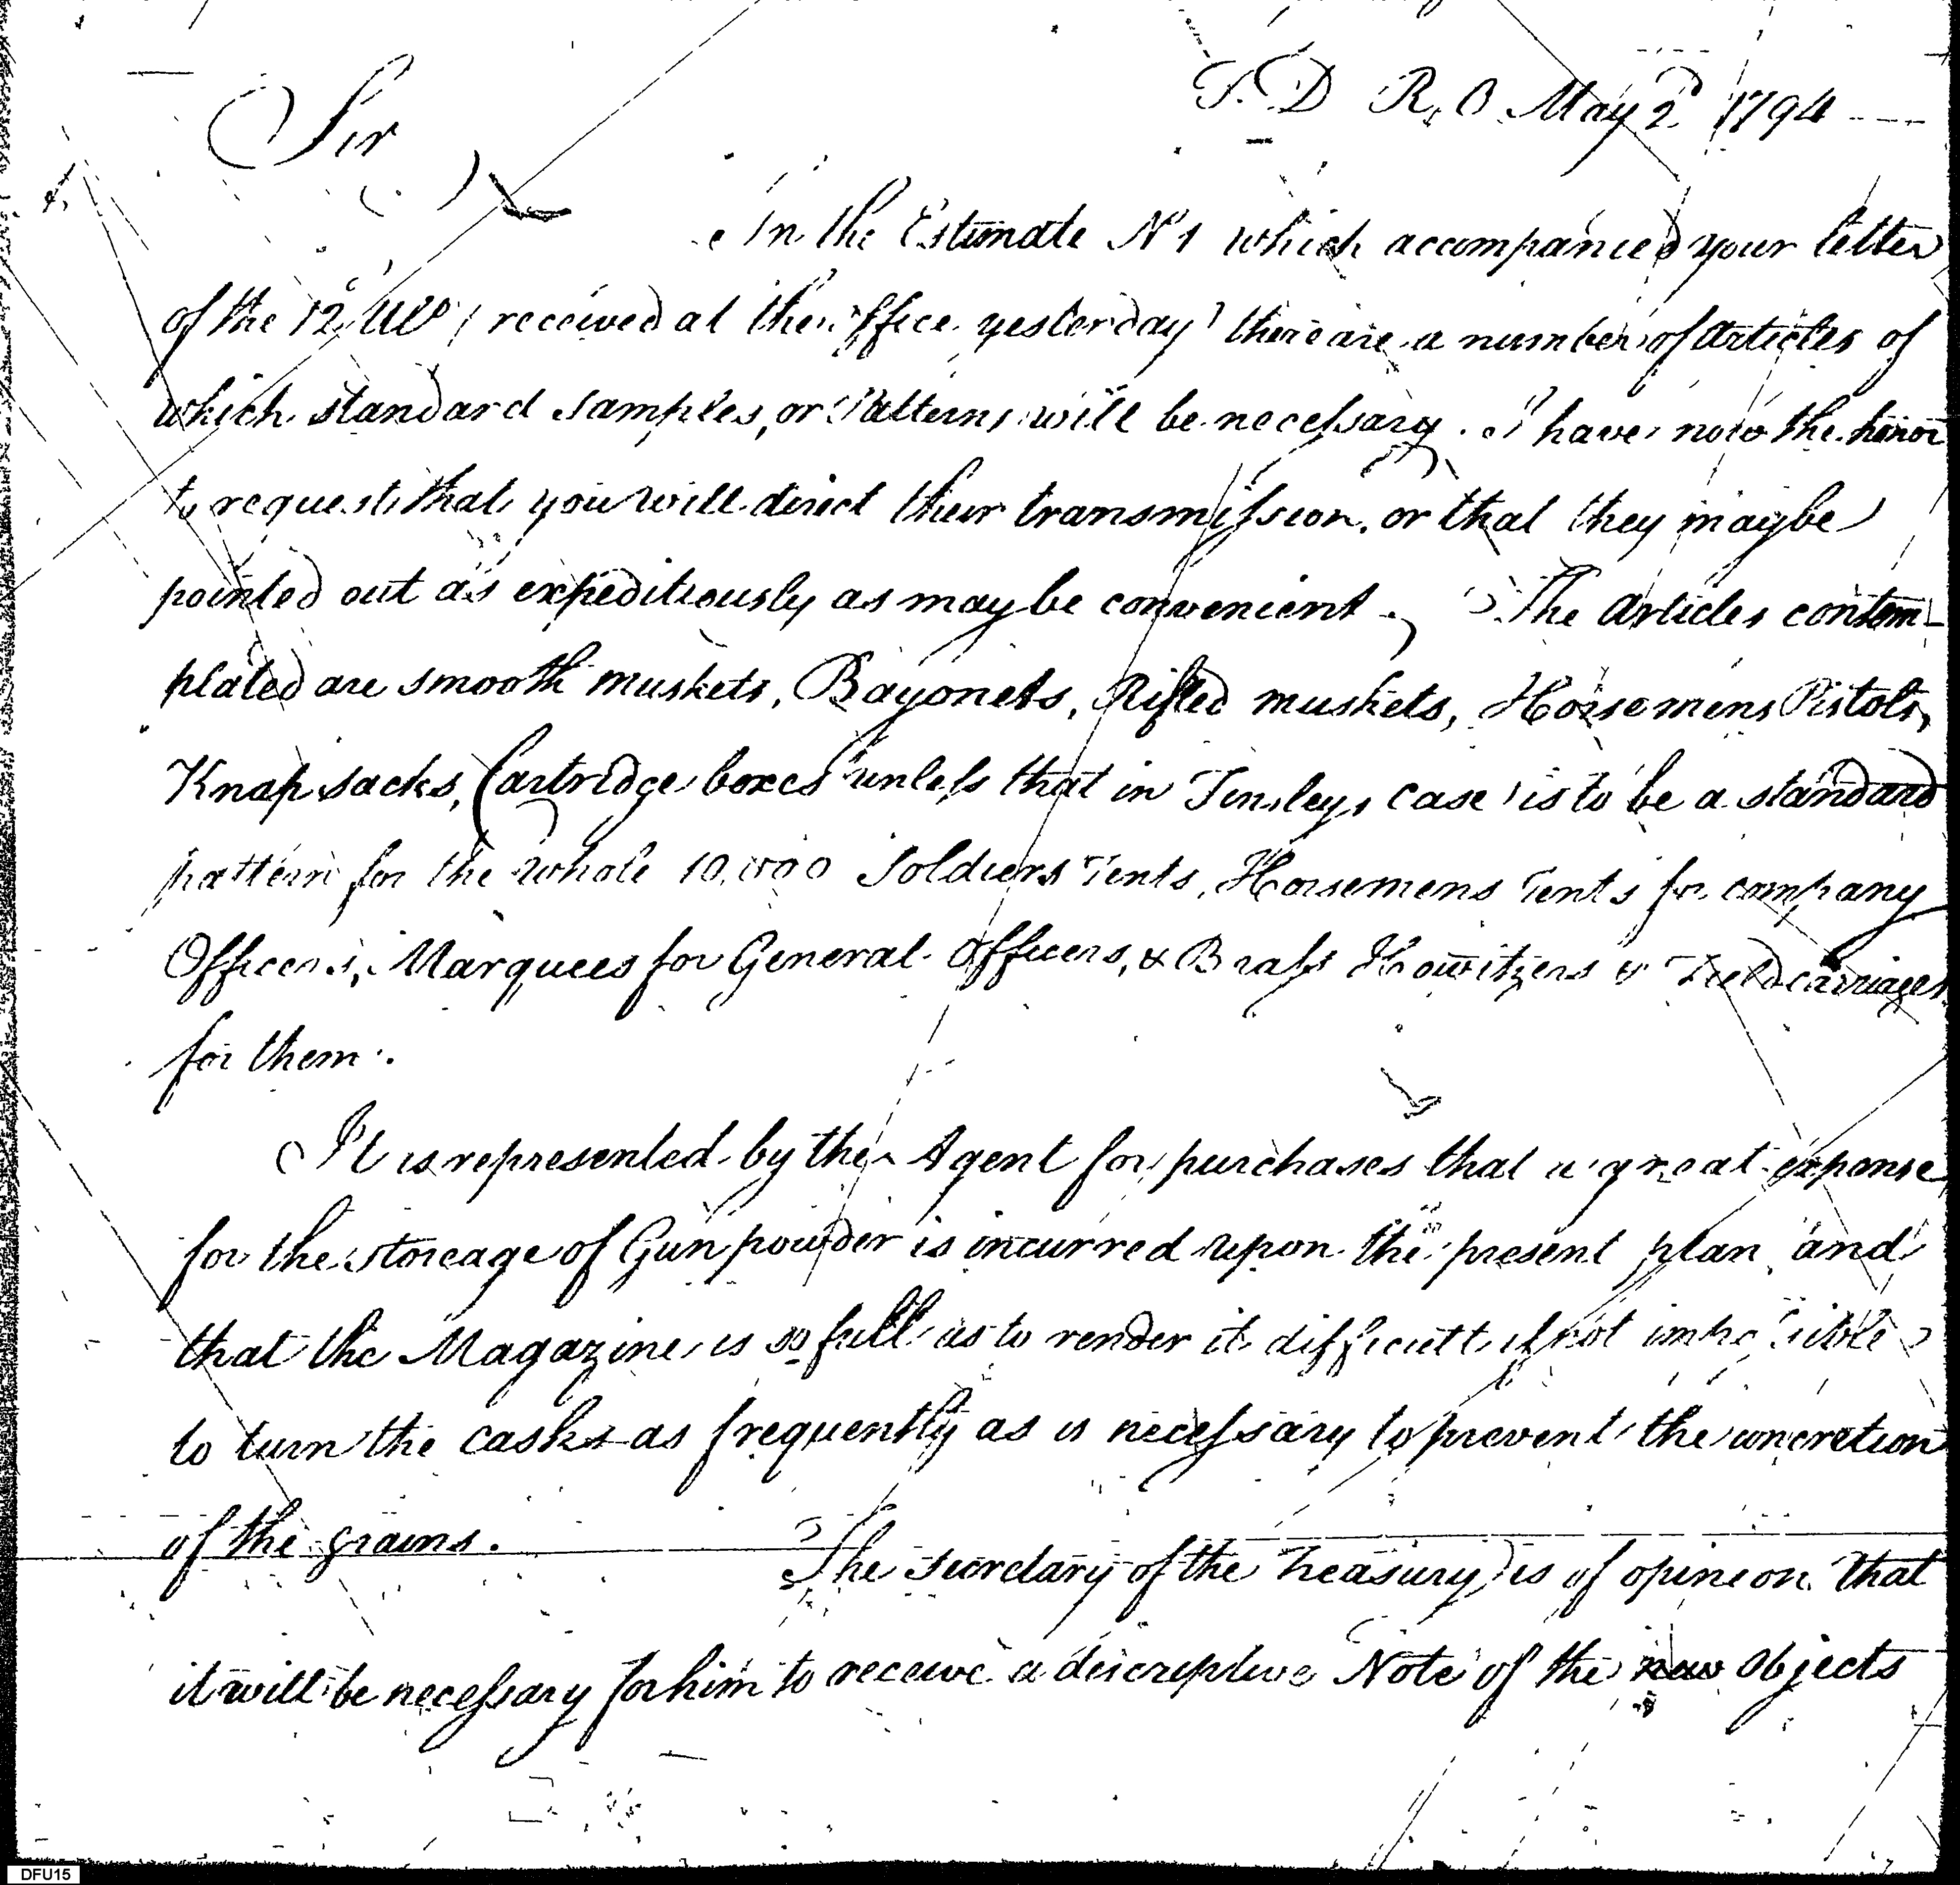 T. D R. O May 2d 1794
Sir
In the Estimate No 1 which accompanied your letter
of the 12 Ulto (received at the office yesterday) there are a number of Articles of
which standard samples, or Patterns will be necessary. I have now the honor
to request that you will direct their transmission, or that they may be
pointed out as expeditiously as may be convenient. The Articles contem-
plated are smooth muskets, Bayonets, Rifled muskets, Horsemens Pistols,
Knapsacks, Cartridge boxes (unless that in Tinsleys case is to be a standard
pattern for the whole 10,000 Soldiers Tents, Horsemens Tents for company
Officers, Marquees for General Officers, & Brass Howitzers & Field carriages
for them.
It is represented by the Agent for purchases that a great expense
for the storeage of Gunpowder is incurred upon the present plan, and
that the Magazine is so full as to render it difficult, if not impossible
to turn the casks as frequently as is necessary to prevent the concretion
of the grains.
The secretary of the Treasury is of opineon that
it will be necessary for him to receive a discreptive Note of the new Objects
DFU15